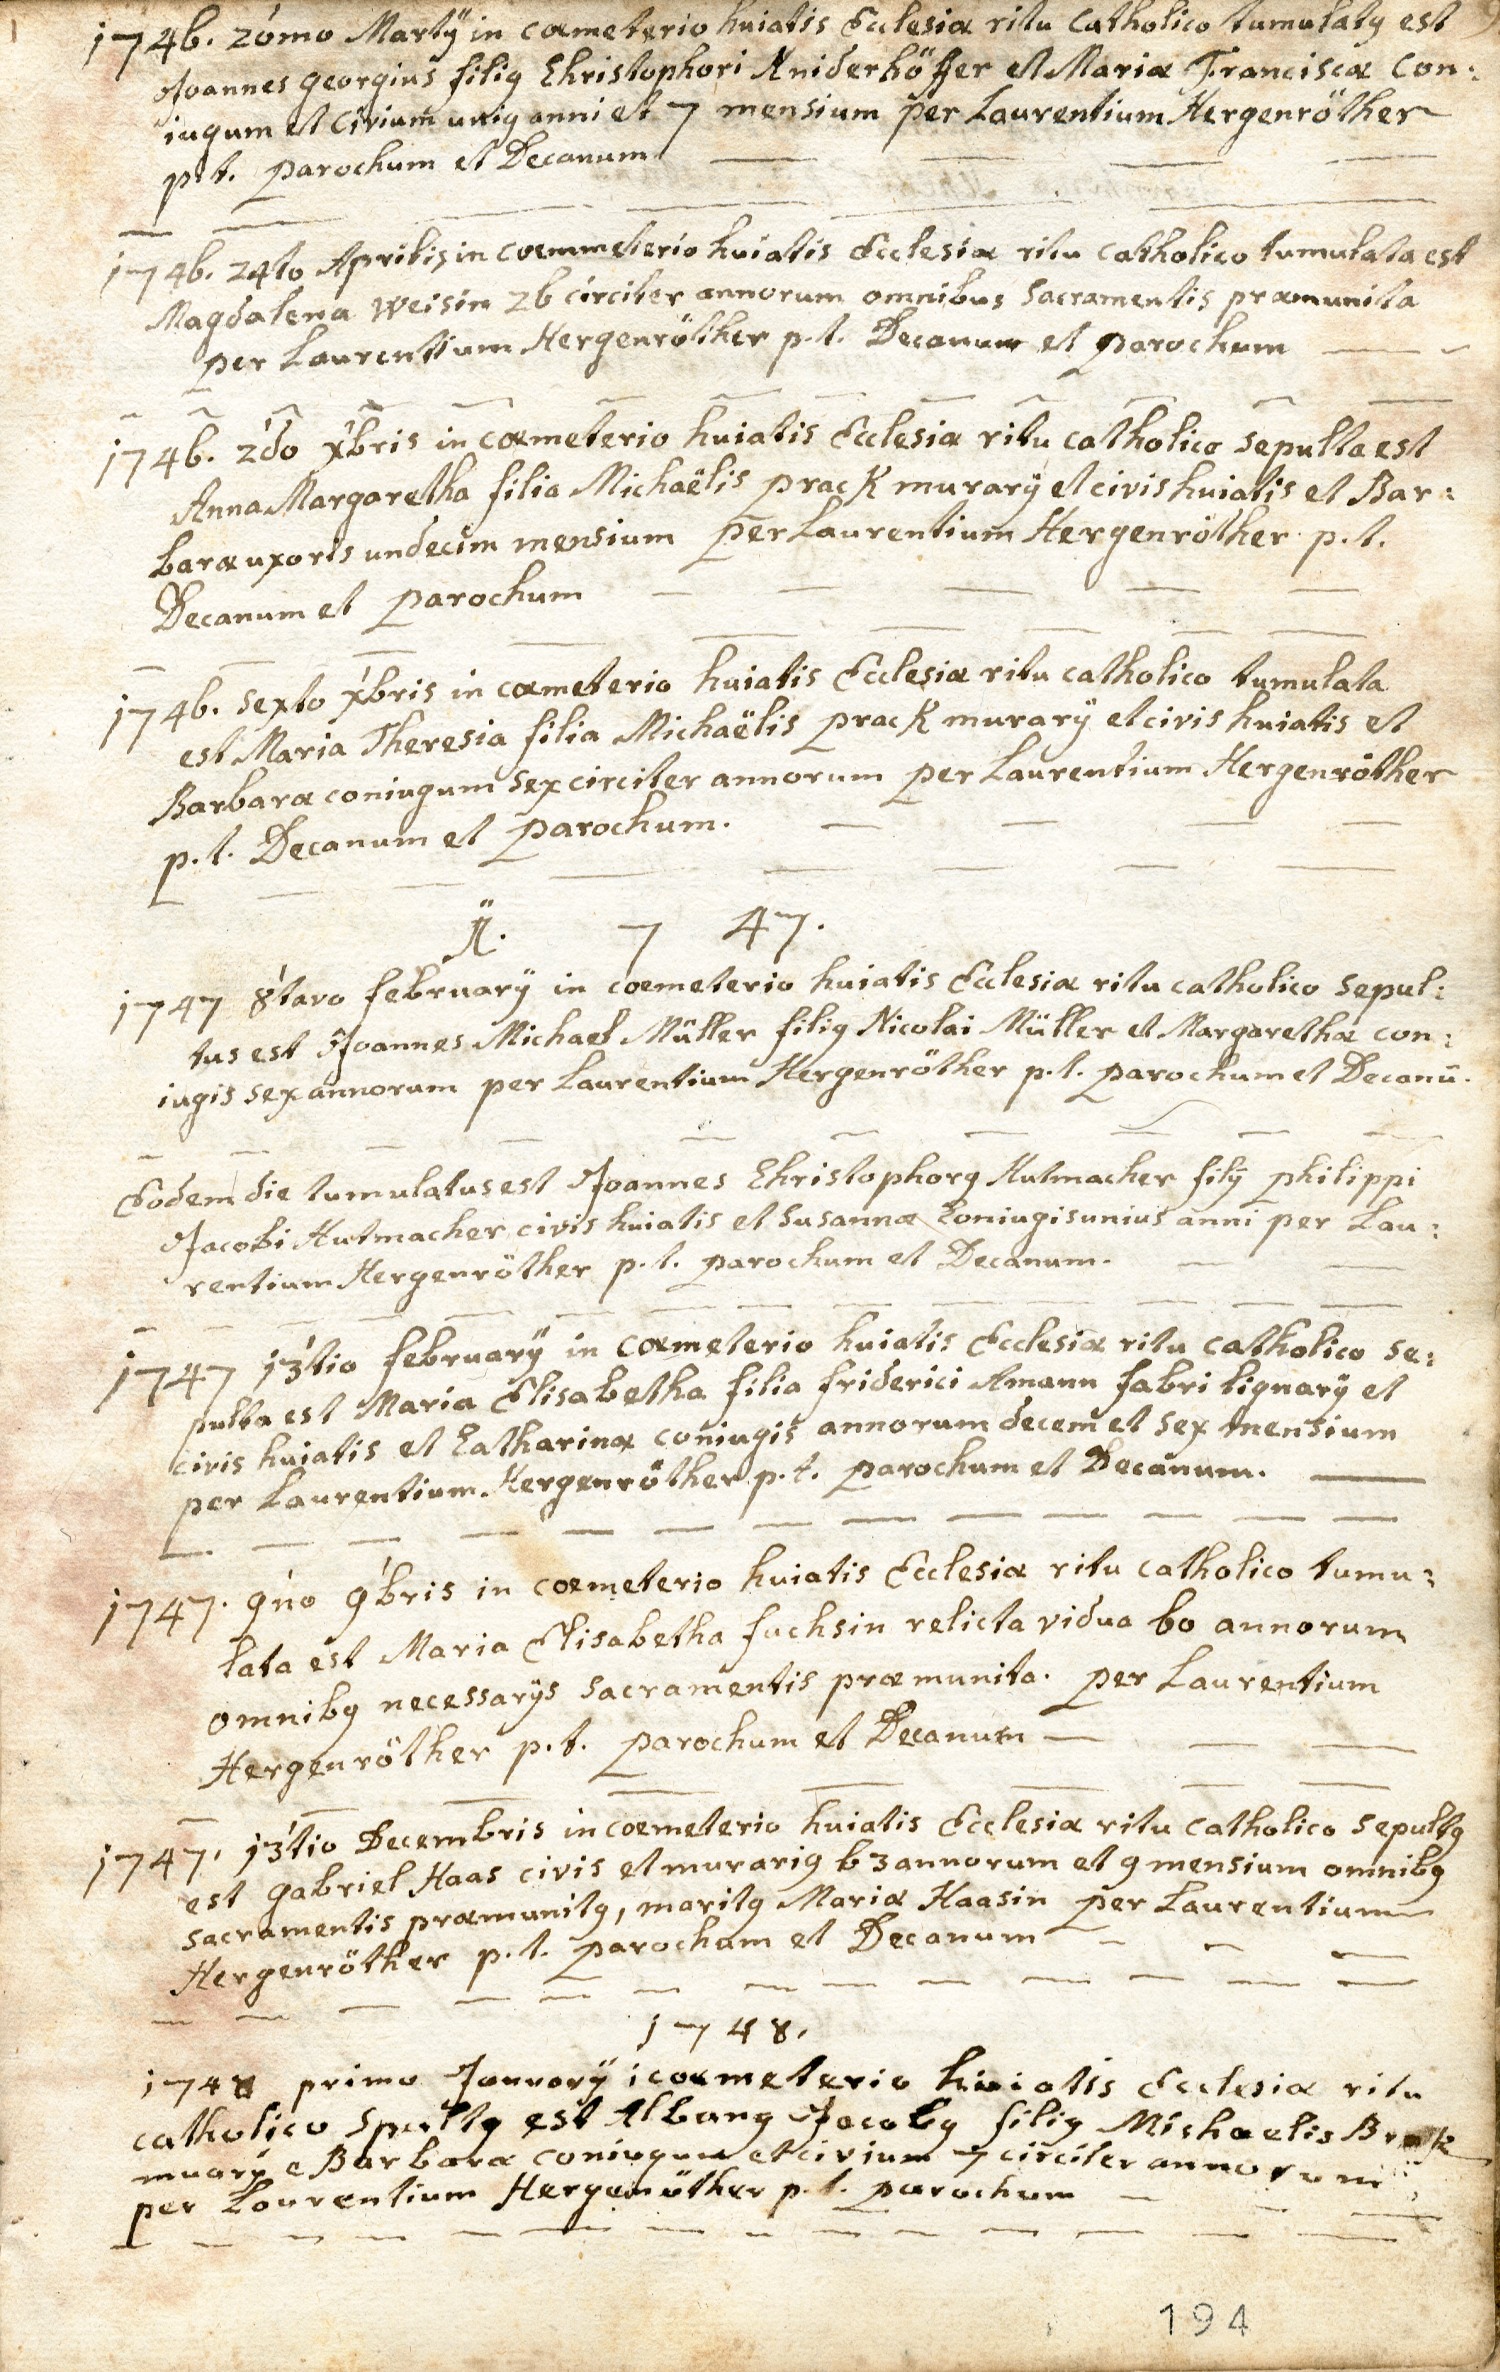 1746. 20mo Martÿ in cœmeterio huiatis Ecclesiæ ritu Catholico tumulatg est
Joannes georgius filig Christophori Niderhöffer et Mariæ Franciscæ Con:
iugum et Civium unig anni et 7 mensium per Laurentium Hergenröther
p.t. parochum et Decanum
1746. 24to Aprilis in cœmmeterio huiatis Ecclesiæ ritu catholico tumulata est
Magdalena Weisin 26 circiter annorum omnibus Sacramentis præmunita
per Laurentium Hergenröther p.t. Decanum et parochum
1746. 2do xbris in cœmeterio huiatis Ecclesiæ ritu catholico sepulta est
Anna Margaretha filia Michaëlis prack murarÿ et civis huiatis et Bar:
baræ uxoris undecim mensium per Laurentium Hergenröther p.t.
Decanum et parochum
1746. sexto xbris in cœmeterio huiatis Ecclesiæ ritu catholico tumulata
est Maria Theresia filia Michaëlis prack murarÿ et civis huiatis et
Barbaræ coniugum sex circiter annorum per Laurentium Hergenröther
p.t. Decanum et parochum.
7 47.
1747 8tavo februarÿ in cœmeterio huiatis Ecclesiæ ritu catholico sepul:
tus est Joannes Michael Müller filig Nicolai Müller et Margarethæ con:
iugis sex annorum per Laurentium Hergenröther p.t. parochum et Decanū.
Eodem die tumulatus est Joannes Christophorg Hutmacher filÿ philippi
Jacobi Hutmacher civis huiatis et Susannæ Coniugis unius anni per Lau:
rentium Hergenröther p.t. parochum et Decanum.
1747 13tio februarÿ in cœmeterio huiatis Ecclesiæ ritu catholico se:
pulta est Maria Elisabetha filia friderici Amann fabri lignarÿ et
civis huiatis et Catharinæ coniugis annorum decem et sex mensium
per Laurentium Hergenröther p.t. parochum et Decanum.
1747. 9no 9bris in cœmeterio huiatis Ecclesiæ ritu catholico tumu:
lata est Maria Elisabetha fuchsin relicta vidua 60 annorum
omnibg necessarÿs sacramentis præmunita. per Laurentium
Hergenröther p.t. parochum et Decanum
1747. 13tio Decembris in cœmeterio huiatis Ecclesiæ ritu catholico sepultg
est gabriel Haas civis et murarig 63 annorum et 9 mensium omnibg
sacramentis præmunitg, maritg Mariæ Haasin per Laurentium
Hergenröther p.t. parochum et Decanum
1748.
1748 primo Januarÿ i cœmeterio huiatis Ecclesiæ ritu
catholico Spultg est Albang Jacobg filig Michaelis
muarÿ e Barbaræ coniugum et civium 7 circiter annorum
per Laurentium Hergenröther p.t. parochum
194